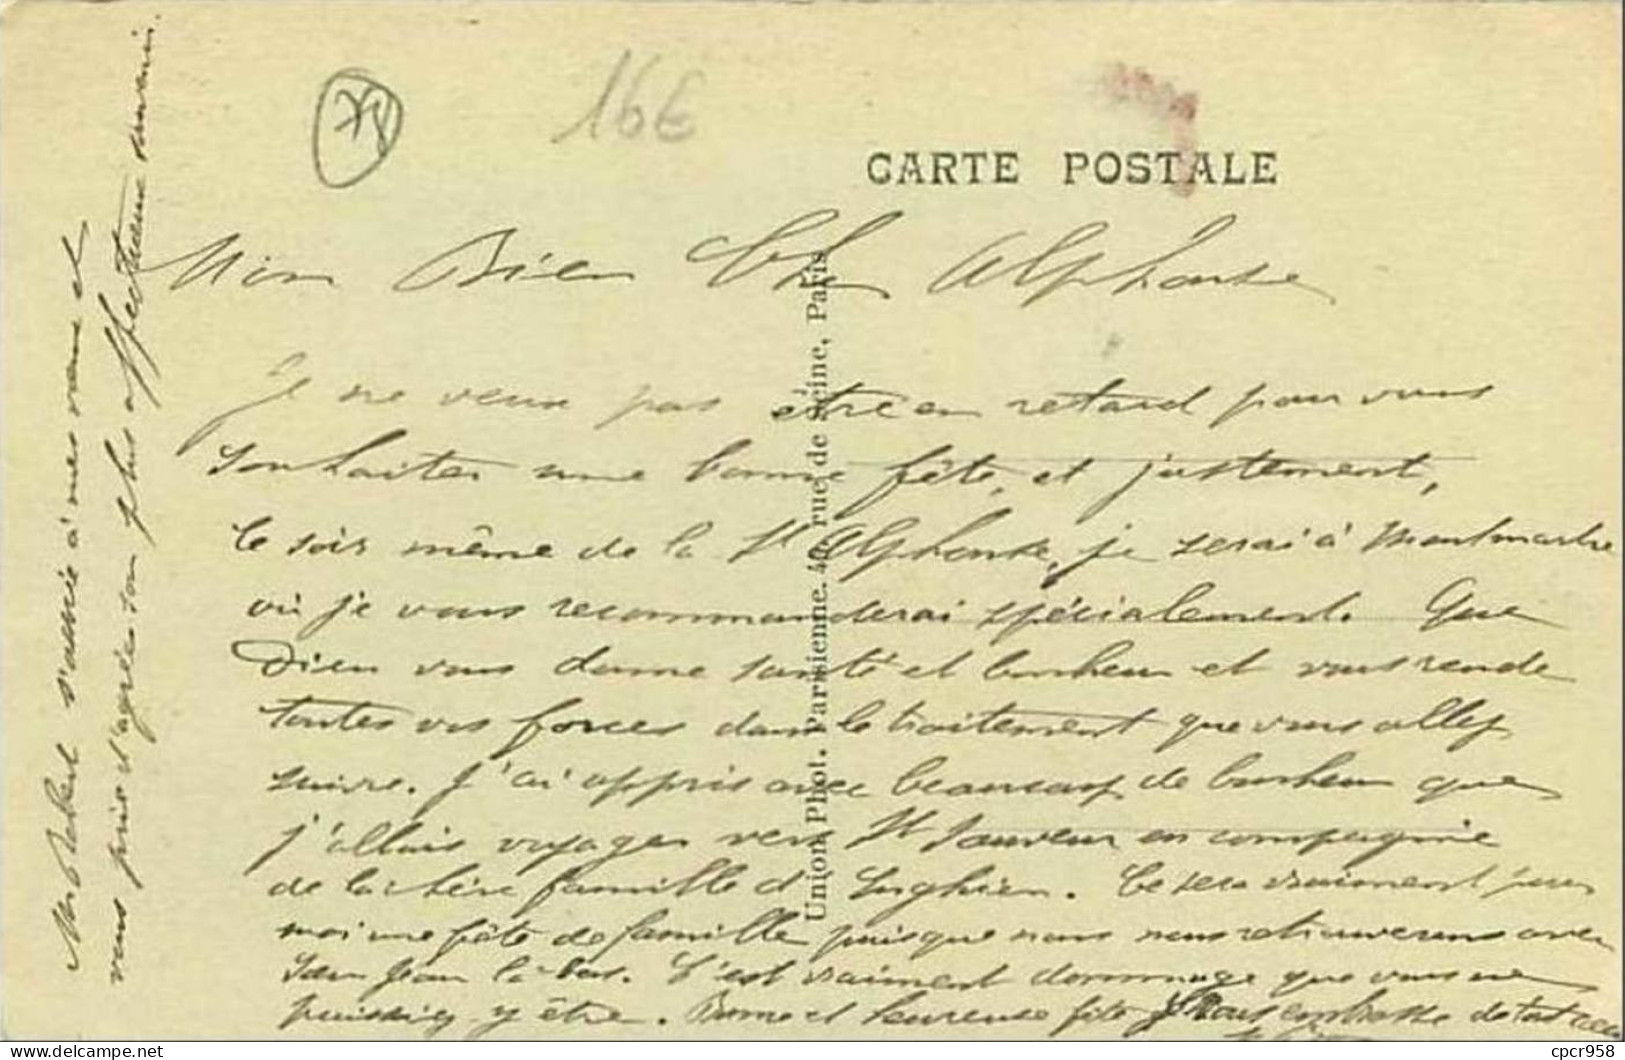 78
16€
CARTE POSTALE
Mon Bien Cher Alphonse
Je ne veux pas être en retard pour vous
souhaiter une bonne fête, et justement,
le soir même de la St Alphonse, je serai à Montmartre
où je vous recommanderai spécialement. Que
Dieu vous donne santé et bonheur et vous rende
toutes vos forces dans le traitement que vous allez
suivre. J'ai appris avec beaucoup de bonheur que
j'allais voyager vers St Sauveur en compagnie
de la chère famille d'Enghien. Ce sera vraiment pour
moi une fête de famille puisque nous nous retrouverons avec
Jean là-bas. C'est vraiment dommage que vous ne
puissiez y être. Bonne et heureuse fête je vous embrasse de tout cœur
s'associe à mes vœux et
vous prie d'agréer son plus affectueux souvenir.
Union Phot. Parisienne. 46, rue de Seine, Paris
cpcr958